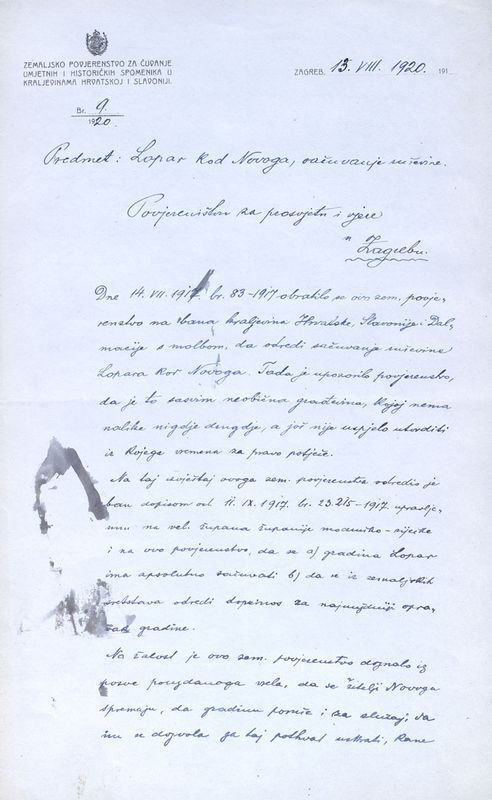 ZEMALJSKO POVJERENSTVO ZA ČUVANJE
UMJETNIH I HISTORIČKIH SPOMENIKA U
KRALJEVINAMA HRVATSKOJ I SLAVONIJI.
ZAGREB, 13. VIII. 1920. 191
Br. 9.
1920.
Predmet: Lopar kod Novoga, sačuvanje ruševine.
Povjereništvu za prosvjetu i vjere
u
Zagrebu.
Dne 14. VII. 1917. br. 83-1917 obratilo se ovo zem. povje-
renstvo na bana kraljevina Hrvatske, Slavonije i Dal-
macije s molbom, da odredi sačuvanje ruševine
Lopara kod Novoga. Tada je upozorilo povjerenstvo,
da je to sasvim neobična građevina, kojoj nema
nalike nigdje drugdje, a još nije uspjelo utvrditi
iz kojega vremena za pravo potječe.
Na taj izvještaj ovoga zem. povjerenstva odredio je
ban dopisom od 11. IX. 1917. br. 23.215-1917. upravlje-
nim na vel. župana županije modruško-riječke
i na ovo povjerenstvo, da se a) gradina Lopar
ima apsolutno sačuvati b) da se iz zemaljskih
sredstava odredi doprinos za najnužniji opra-
vak gradine.
Na žalost je ovo zem. povjerenstvo doznalo iz
posve pouzdanoga vrela, da se žitelji Novoga
spremaju, da gradinu poruše i za slučaj, da
im se dozvola za taj pothvat uskrati, kane